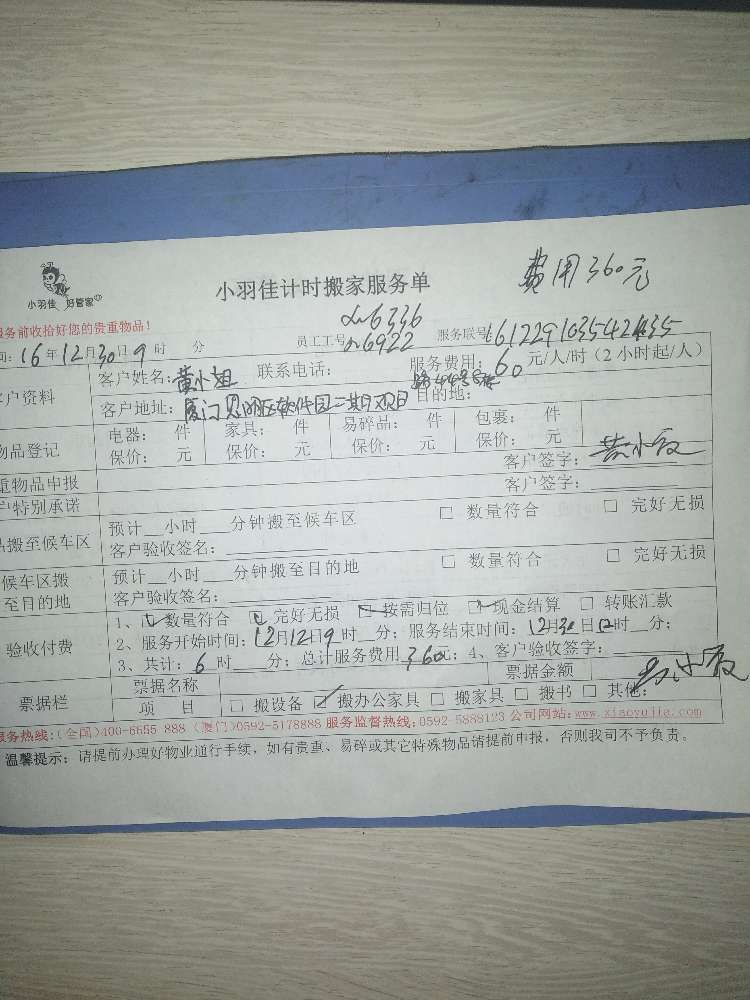 小羽佳 好管家
小羽佳计时搬家服务单
费用360元
务前收拾好您的贵重物品！
员工工号 6336
6922
服务联号
16年12月30日9时 分
户资料 客户姓名：黄小姐 联系电话： 服务费用：60元/人/时（2小时起/人）
客户地址：厦门思明区软件园二期观日
路44号
目的地：
物品登记 电器： 件 家具： 件 易碎品： 件 包裹： 件
保价： 元 保价： 元 保价： 元 保价： 元
重物品申报 客户签字：
特别承诺 客户签字：
搬至候车区 预计__小时___分钟搬至候车区 □ 数量符合 □ 完好无损
客户验收签名：
候车区搬 预计__小时___分钟搬至目的地 □ 数量符合 □ 完好无损
至目的地 客户验收签名：
验收付费 1、☑ 数量符合 ☑ 完好无损 ☑ 按需归位 ☑ 现金结算 □ 转账汇款
2、服务开始时间：12月12日9时__分；服务结束时间：12月30日12时__分；
3、共计：6时___分；总计服务费用360元；4、客户验收签字：
票据栏 票据名称 票据金额
项 目 □ 搬设备 ☑ 搬办公家具 □ 搬家具 □ 搬书 □ 其他：
服务热线：(全国)400-6655 888 (厦门)0592-5178888 服务监督热线：0592-5888123 公司网站：www.xiaoyujia.com
温馨提示：请提前办理好物业通行手续，如有贵重、易碎或其它特殊物品请提前申报，否则我司不予负责。